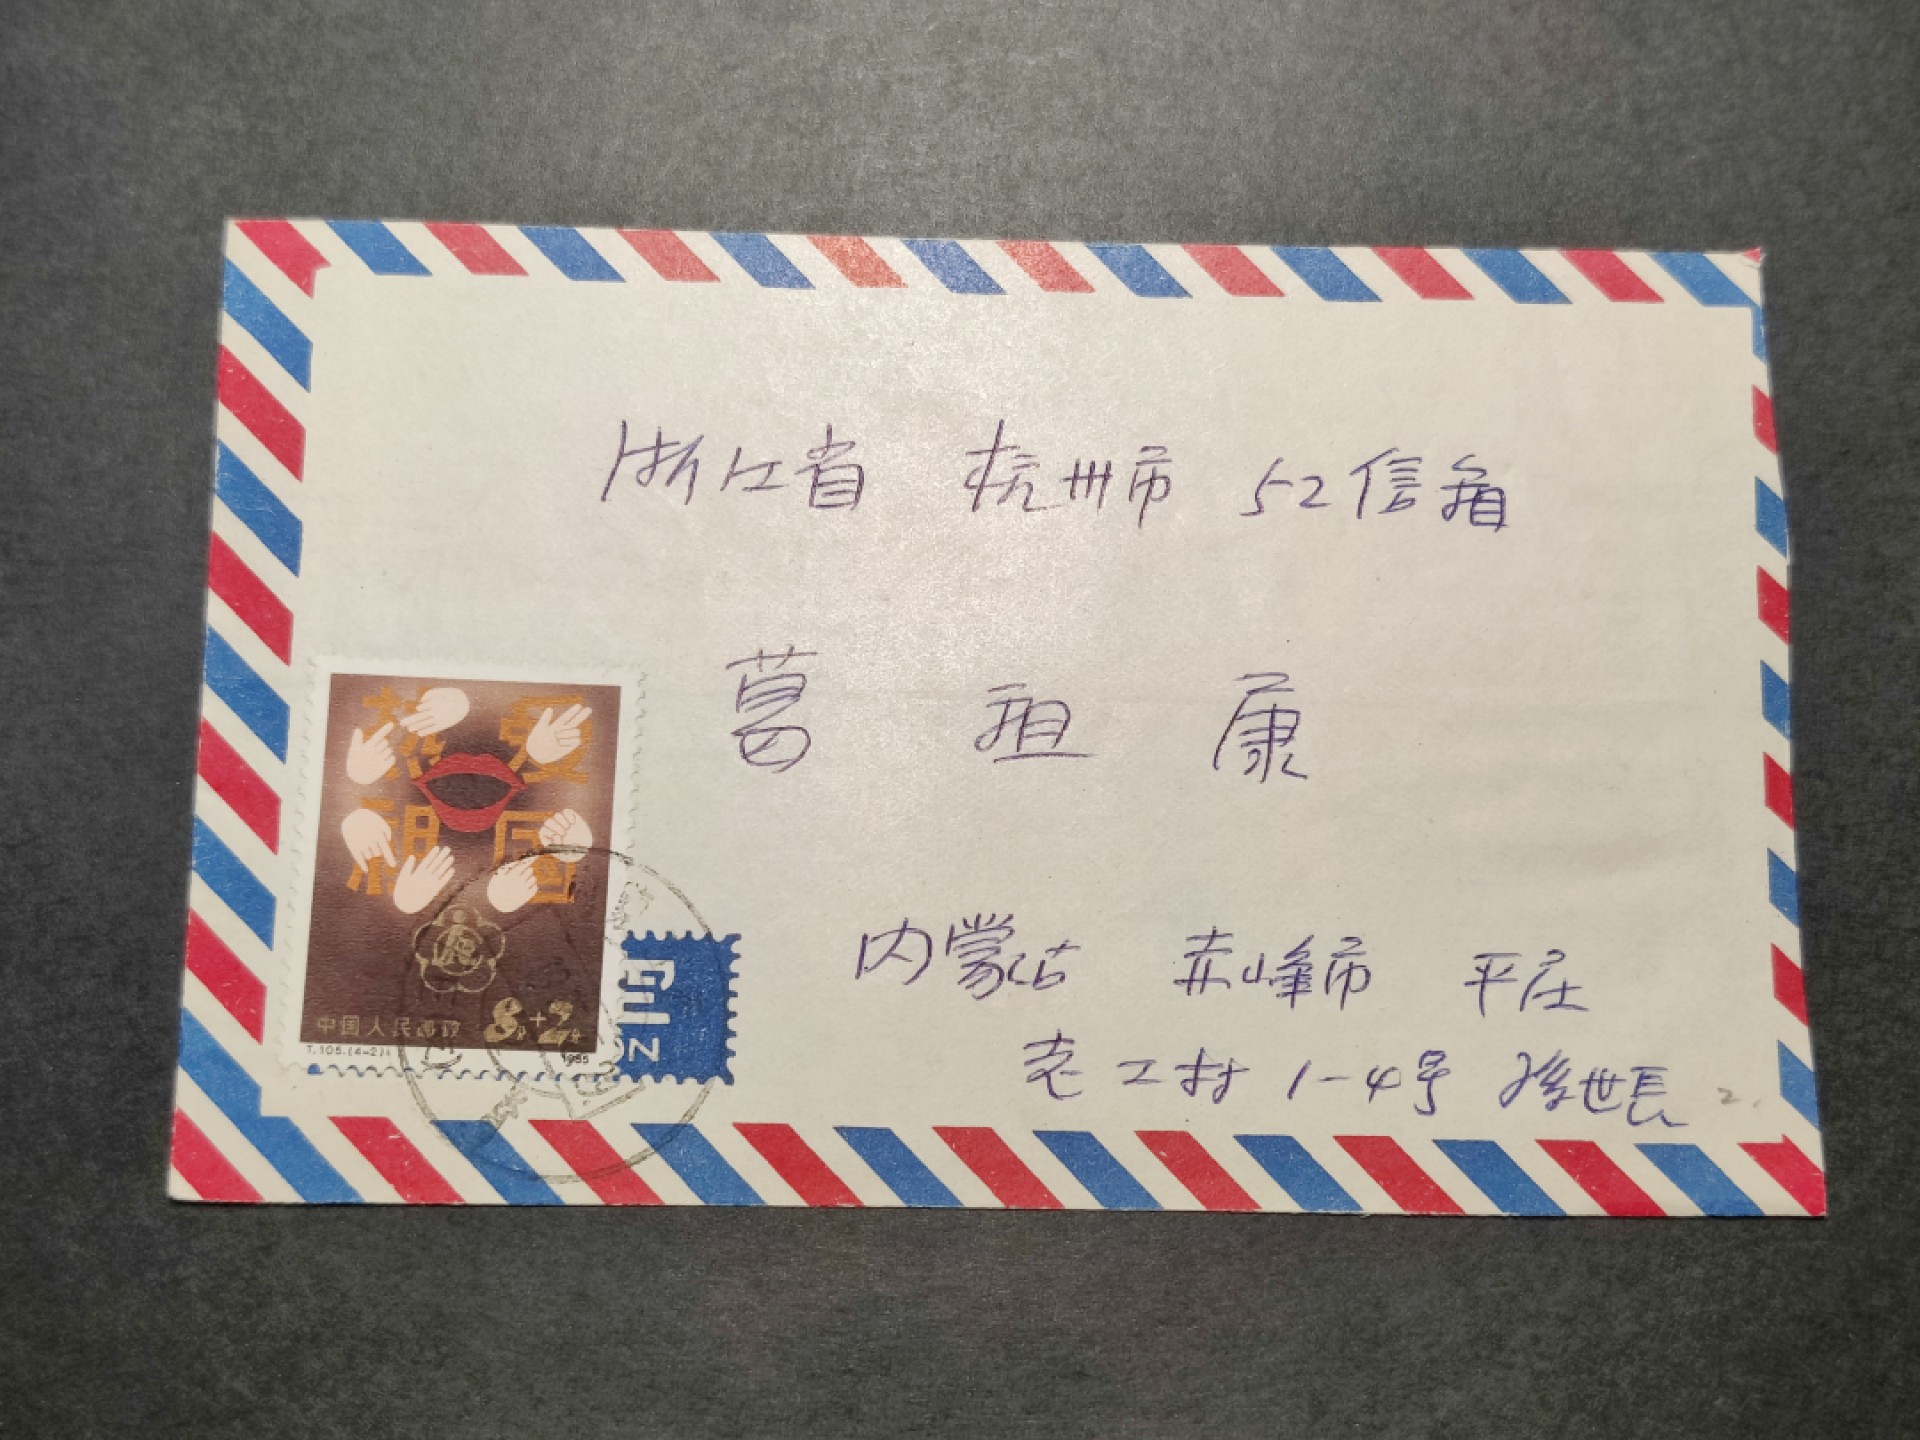 浙江省 杭州市 52信箱
葛 祖 康
热爱
祖国
中国人民邮政 8分+2分
T.105.(4-2) 1985
内蒙古 赤峰市 平庄
老工村 1-4号 孫世長 2.